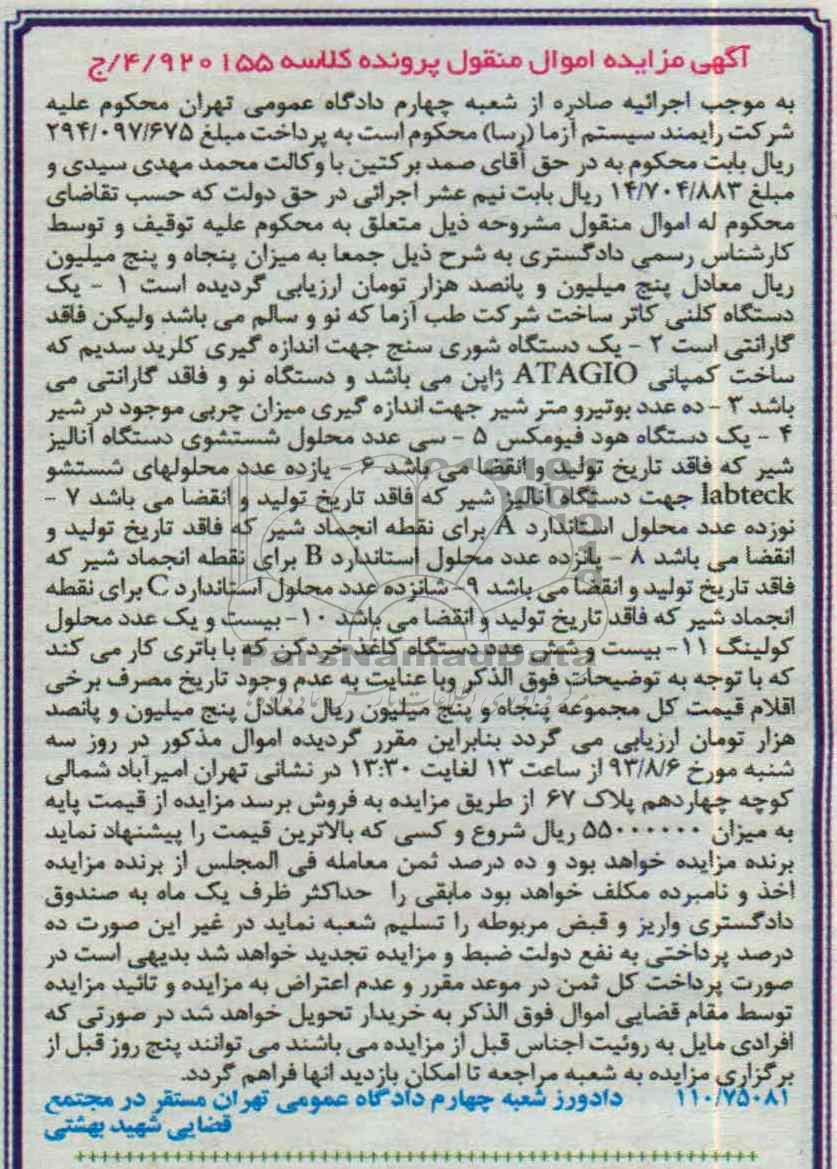 آگهی مزایده اموال منقول پرونده کلاسه ۹۲۰۱۵۵/۴/ج
به موجب اجرائیه صادره از شعبه چهارم دادگاه عمومی تهران محکوم علیه
شرکت رایمند سیستم آزما (رسا) محکوم است به پرداخت مبلغ ۲۹۴/۰۹۷/۶۷۵
ریال بابت محکوم به در حق آقای صمد برکتین با وکالت محمد مهدی سیدی و
مبلغ ۱۴/۷۰۴/۸۸۳ ریال بابت نیم عشر اجرائی در حق دولت که حسب تقاضای
محکوم له اموال منقول مشروحه ذیل متعلق به محکوم علیه توقیف و توسط
کارشناس رسمی دادگستری به شرح ذیل جمعا به میزان پنجاه و پنج میلیون
ریال معادل پنج میلیون و پانصد هزار تومان ارزیابی گردیده است ۱ - یک
دستگاه کلنی کانر ساخت شرکت طب آزما که نو و سالم می باشد ولیکن فاقد
گارانتی است ۲ - یک دستگاه شوری سنج جهت اندازه گیری کلرید سدیم که
ساخت کمپانی ATAGIO ژاپن می باشد و دستگاه نو و فاقد گارانتی می
باشد ۳ - ده عدد بوتیرو متر شیر جهت اندازه گیری میزان چربی موجود در شیر
۴ - یک دستگاه هود فیومکس ۵ - سی عدد محلول شستشوی دستگاه آنالیز
شیر که فاقد تاریخ تولید و انقضا می باشد ۶ - یازده عدد محلولهای شستشو
labteck جهت دستگاه آنالیز شیر که فاقد تاریخ تولید و انقضا می باشد ۷ -
نوزده عدد محلول استاندارد A برای نقطه انجماد شیر که فاقد تاریخ تولید و
انقضا می باشد ۸ - پانزده عدد محلول استاندارد B برای نقطه انجماد شیر که
فاقد تاریخ تولید و انقضا می باشد ۹- شانزده عدد محلول استاندارد C برای نقطه
انجماد شیر که فاقد تاریخ تولید و انقضا می باشد ۱۰- بیست و یک عدد محلول
کولینگ ۱۱- بیست و شش عدد دستگاه کاغذ خردکن که با باتری کار می کند
که با توجه به توضیحات فوق الذکر وبا عنایت به عدم وجود تاریخ مصرف برخی
اقلام قیمت کل مجموعه پنجاه و پنج میلیون ریال معادل پنج میلیون و پانصد
هزار تومان ارزیابی می گردد بنابراین مقرر گردیده اموال مذکور در روز سه
شنبه مورخ ۹۳/۸/۶ از ساعت ۱۳ لغایت ۱۳:۳۰ در نشانی تهران امیرآباد شمالی
کوچه چهاردهم پلاک ۶۷ از طریق مزایده به فروش برسد مزایده از قیمت پایه
به میزان ۵۵۰۰۰۰۰۰ ریال شروع و کسی که بالاترین قیمت را پیشنهاد نماید
برنده مزایده خواهد بود و ده درصد ثمن معامله فی المجلس از برنده مزایده
اخذ و نامبرده مکلف خواهد بود مابقی را حداکثر ظرف یک ماه به صندوق
دادگستری واریز و قبض مربوطه را تسلیم شعبه نماید در غیر این صورت ده
درصد پرداختی به نفع دولت ضبط و مزایده تجدید خواهد شد بدیهی است در
صورت پرداخت کل ثمن در موعد مقرر و عدم اعتراض به مزایده و تائید مزایده
توسط مقام قضایی اموال فوق الذکر به خریدار تحویل خواهد شد در صورتی که
افرادی مایل به روئیت اجناس قبل از مزایده می باشند می توانند پنج روز قبل از
برگزاری مزایده به شعبه مراجعه تا امکان بازدید انها فراهم گردد.
۱۱۰/۷۵۰۸۱ دادورز شعبه چهارم دادگاه عمومی تهران مستقر در مجتمع
قضایی شهید بهشتی
ParsNamadData